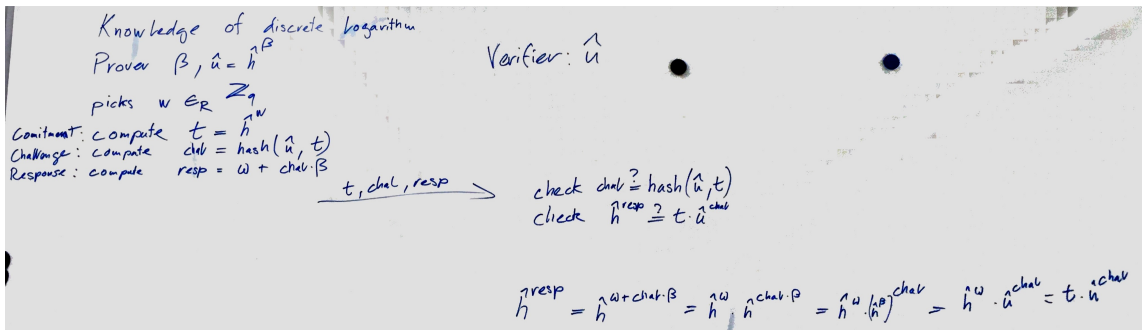 Knowledge of discrete logarithm
Prover β, û = ĥ^β
Verifier: û
picks w ∈_R ℤ_q
Comitment: compute t = ĥ^w
Challenge: compute chal = hash(û, t)
Response: compute resp = ω + chal·β
t, chal, resp
check chal ≟ hash(û, t)
check ĥ^resp ≟ t·û^chal
ĥ^resp = ĥ^(ω+chal·β) = ĥ^ω · ĥ^(chal·β) = ĥ^ω·(ĥ^β)^chal = ĥ^ω · û^chal = t·û^chal